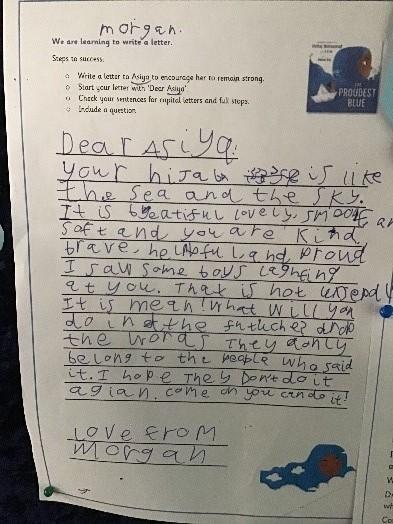 morgan.
We are learning to write a letter.
Steps to success:
Write a letter to Asiya to encourage her to remain strong.
Start your letter with 'Dear Asiya'.
Check your sentences for capital letters and full stops.
Include a question.
THE
PROUDEST
BLUE
Dear Asiya:
your hijab is like
the sea and the sky.
It is beatiful lovely, smooth an
soft and you are kind
brave, helpful, and proud
I saw some boys
at you. That is not
It is mean! What will you
do in the drop
the words They only
belong to the people who said
it. I hope They Dont do it
agian. come on you can do it!
Love from
Morgan